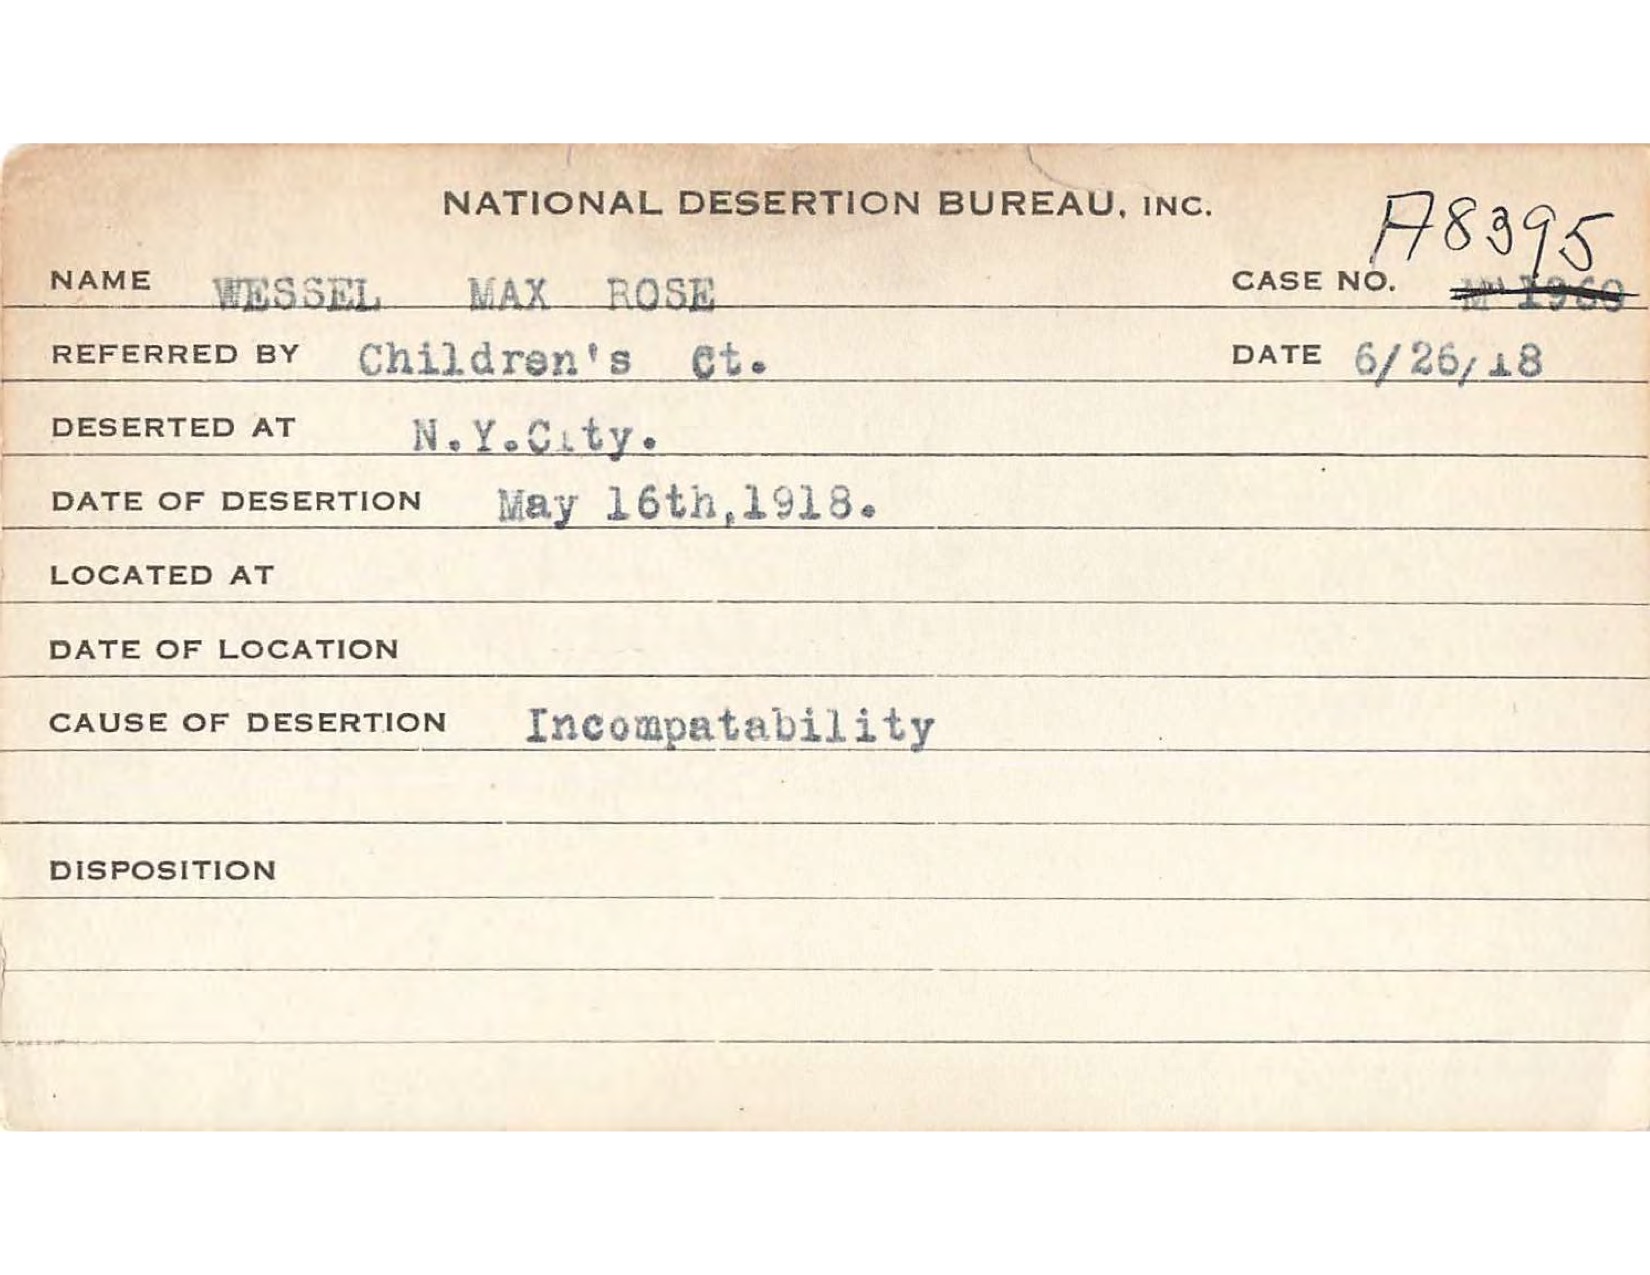 NATIONAL DESERTION BUREAU, INC.
A8395
NAME WESSEL MAX ROSE CASE NO.
REFERRED BY Children's Ct. DATE 6/26/18
DESERTED AT N.Y.City.
DATE OF DESERTION May 16th,1918.
LOCATED AT
DATE OF LOCATION
CAUSE OF DESERTION Incompatability
DISPOSITION